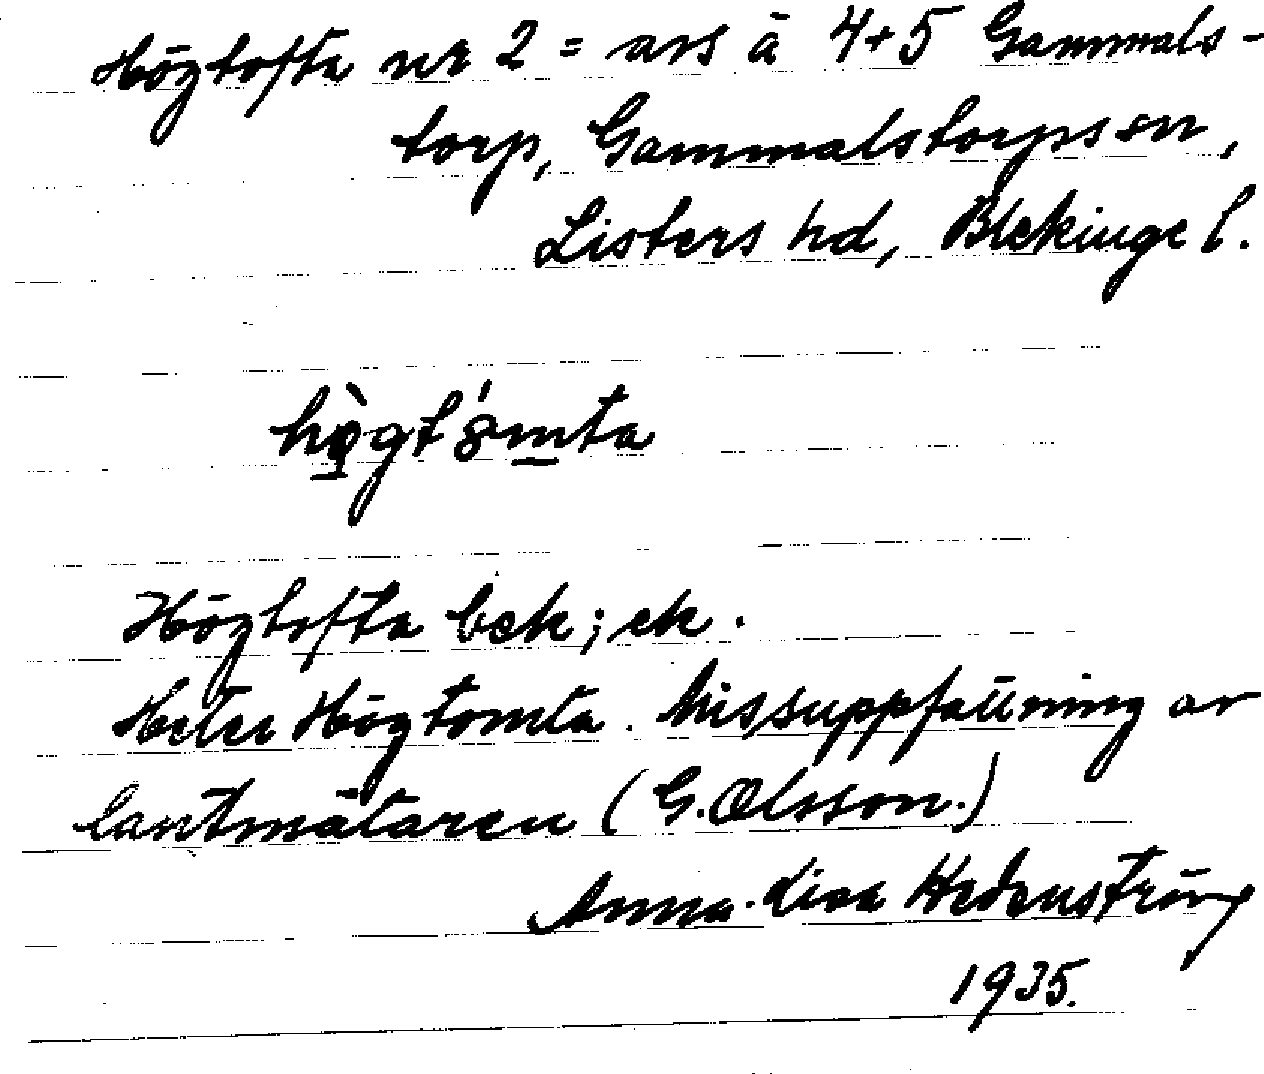 Högtofta nr 2 = avs å 4+5 Gammals-
torp, Gammalstorps sn,
Listers hd, Blekinge l.
Högtofta bek; ek.
Heter Högtomta. Missuppfattning av
lantmätaren (G. Olsson.)
Anna-Lisa Hedenström
1935.